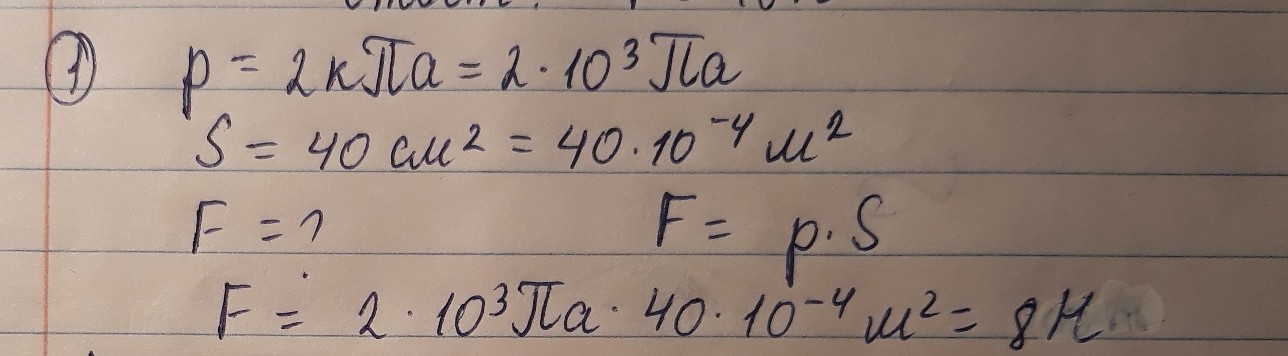 ① p = 2 кПа = 2 · 10³ Па
S = 40 см² = 40 · 10⁻⁴ м²
F = ? F = p · S
F = 2 · 10³ Па · 40 · 10⁻⁴ м² = 8 Н